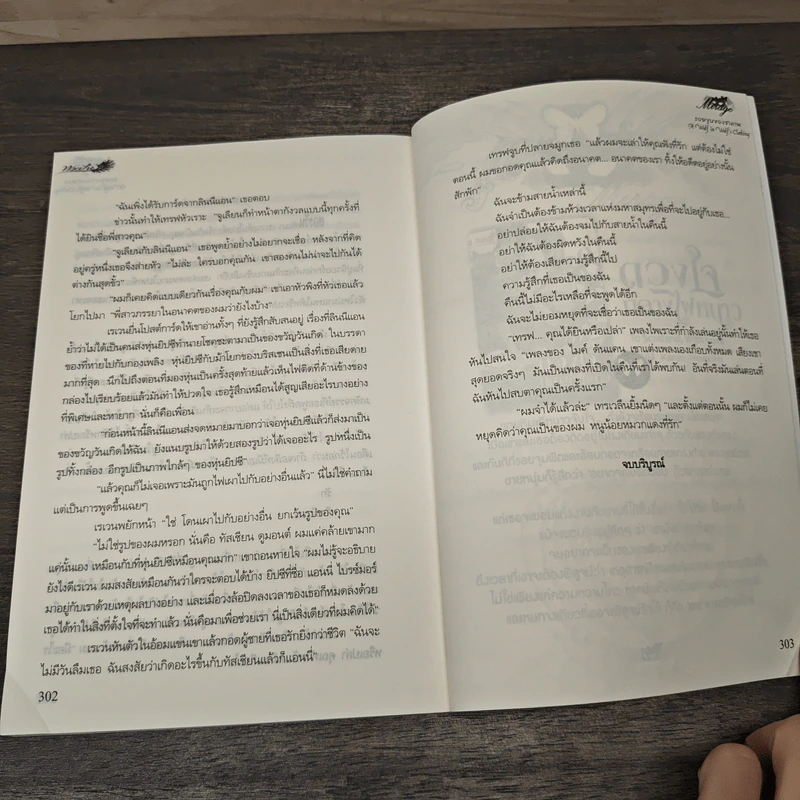 "ฉันเพิ่งได้รับการ์ดจากลินนีแอน" เธอตอบ
ข่าวนั้นทำให้เทรฟหัวเราะ "จูเลียนก็ทำหน้าตากังวลแบบนี้ทุกครั้งที่
ได้ยินชื่อพี่สาวคุณ"
"จูเลียนกับลินนีแอน" เธอพูดย้ำอย่างไม่อยากจะเชื่อ หลังจากที่คิด
อยู่ครู่หนึ่งเธอจึงส่ายหัว "ไม่ล่ะ ใครบอกคุณกัน เขาสองคนไม่น่าจะไปกันได้
ต่างกันสุดขั้ว"
"ผมก็เคยคิดแบบเดียวกันเรื่องคุณกับผม" เขาเอาหัวพิงที่หัวเธอแล้ว
โยกไปมา "พี่สาวภรรยาในอนาคตของผมว่ายังไงบ้าง"
เรเวนยื่นโปสต์การ์ดให้เขาอ่านทั้งๆ ที่ยังรู้สึกสับสนอยู่ เรื่องที่ลินนีแอน
ย้ำว่าไม่ได้เป็นคนส่งหุ่นยิปซีทำนายโชคชะตามาเป็นของขวัญวันเกิด ในบรรดา
ของที่หายไปกับกองเพลิง หุ่นยิปซีกับม้าโยกของบริสเซนเป็นสิ่งที่เธอเสียดาย
มากที่สุด นึกไปถึงตอนที่มองหุ่นเป็นครั้งสุดท้ายแล้วเห็นไพ่ติดที่ด้านข้างของ
กล่องไปเรียบร้อยแล้วมันทำให้ปวดใจ เธอรู้สึกเหมือนได้สูญเสียอะไรบางอย่าง
ที่พิเศษและหายาก นั่นก็คือเพื่อน
"ก่อนหน้านี้ลินนีแอนส่งจดหมายมาบอกว่าเจอหุ่นยิปซีแล้วก็ส่งมาเป็น
ของขวัญวันเกิดให้ฉัน ยังแนบรูปมาให้ด้วยสองรูปว่าได้เจออะไร รูปหนึ่งเป็น
รูปทั้งกล่อง อีกรูปเป็นภาพใกล้ๆ ของหุ่นยิปซี"
"แล้วคุณก็ไม่เจอเพราะมันถูกไฟเผาไปกับอย่างอื่นแล้ว" นี่ไม่ใช่คำถาม
แต่เป็นการพูดขึ้นเฉยๆ
เรเวนพยักหน้า "ใช่ โดนเผาไปกับอย่างอื่น ยกเว้นรูปของคุณ"
"ไม่ใช่รูปของผมหรอก นั่นคือ ทัสเซียน ดูมอนต์ ผมแค่คล้ายเขามาก
แค่นั้นเอง เหมือนกับที่หุ่นยิปซีเหมือนคุณมาก" เขาถอนหายใจ "ผมไม่รู้จะอธิบาย
ยังไงดีเรเวน ผมสงสัยเหมือนกันว่าใครจะตอบได้บ้าง ยิปซีที่ชื่อ แอนนี่ ไบรซ์มอร์
มาอยู่กับเราด้วยเหตุผลบางอย่าง และเมื่อวงล้อปิดลงเวลาของเธอก็หมดลงด้วย
เธอได้ทำในสิ่งที่ตั้งใจที่จะทำแล้ว นั่นคือมาเพื่อช่วยเรา นี่เป็นสิ่งเดียวที่ผมคิดได้"
เรเวนหันตัวในอ้อมแขนเขาแล้วกอดผู้ชายที่เธอรักยิ่งกว่าชีวิต "ฉันจะ
ไม่มีวันลืมเธอ ฉันสงสัยว่าเกิดอะไรขึ้นกับทัสเซียนแล้วก็แอนนี่"
302
Mirage
เทรฟจูบที่ปลายจมูกเธอ "แล้วผมจะเล่าให้คุณฟังที่รัก แต่ต้องไม่ใช่
ตอนนี้ ผมขอกอดคุณแล้วคิดถึงอนาคต... อนาคตของเรา ทิ้งให้อดีตอยู่อย่างนั้น
สักพัก"
ฉันจะข้ามสายน้ำเหล่านี้
ฉันจำเป็นต้องข้ามห้วงเวลาแห่งมหาสมุทรเพื่อที่จะไปอยู่กับเธอ...
อย่าปล่อยให้ฉันต้องจมไปกับสายน้ำในคืนนี้
อย่าให้ฉันต้องผิดหวังในคืนนี้
อย่าให้ต้องเสียความรู้สึกนี้ไป
ความรู้สึกที่เธอเป็นของฉัน
คืนนี้ไม่มีอะไรเหลือที่จะพูดได้อีก
ฉันจะไม่ยอมหยุดที่จะเชื่อว่าเธอเป็นของฉัน
"เทรฟ... คุณได้ยินหรือเปล่า" เพลงไพเราะที่กำลังเล่นอยู่นั้นทำให้เธอ
หันไปสนใจ "เพลงของ ไมค์ ดันแคน เขาแต่งเพลงเองเกือบทั้งหมด เสียงเขา
สุดยอดจริงๆ มันเป็นเพลงที่เปิดในคืนที่เราได้พบกัน! อันที่จริงมันเล่นตอนที่
ฉันหันไปสบตาคุณเป็นครั้งแรก"
"ผมจำได้แล้วล่ะ" เทรเวลีนยิ้มนิดๆ "และตั้งแต่ตอนนั้น ผมก็ไม่เคย
หยุดคิดว่าคุณเป็นของผม หนูน้อยหมวกแดงที่รัก"
จบบริบูรณ์
303